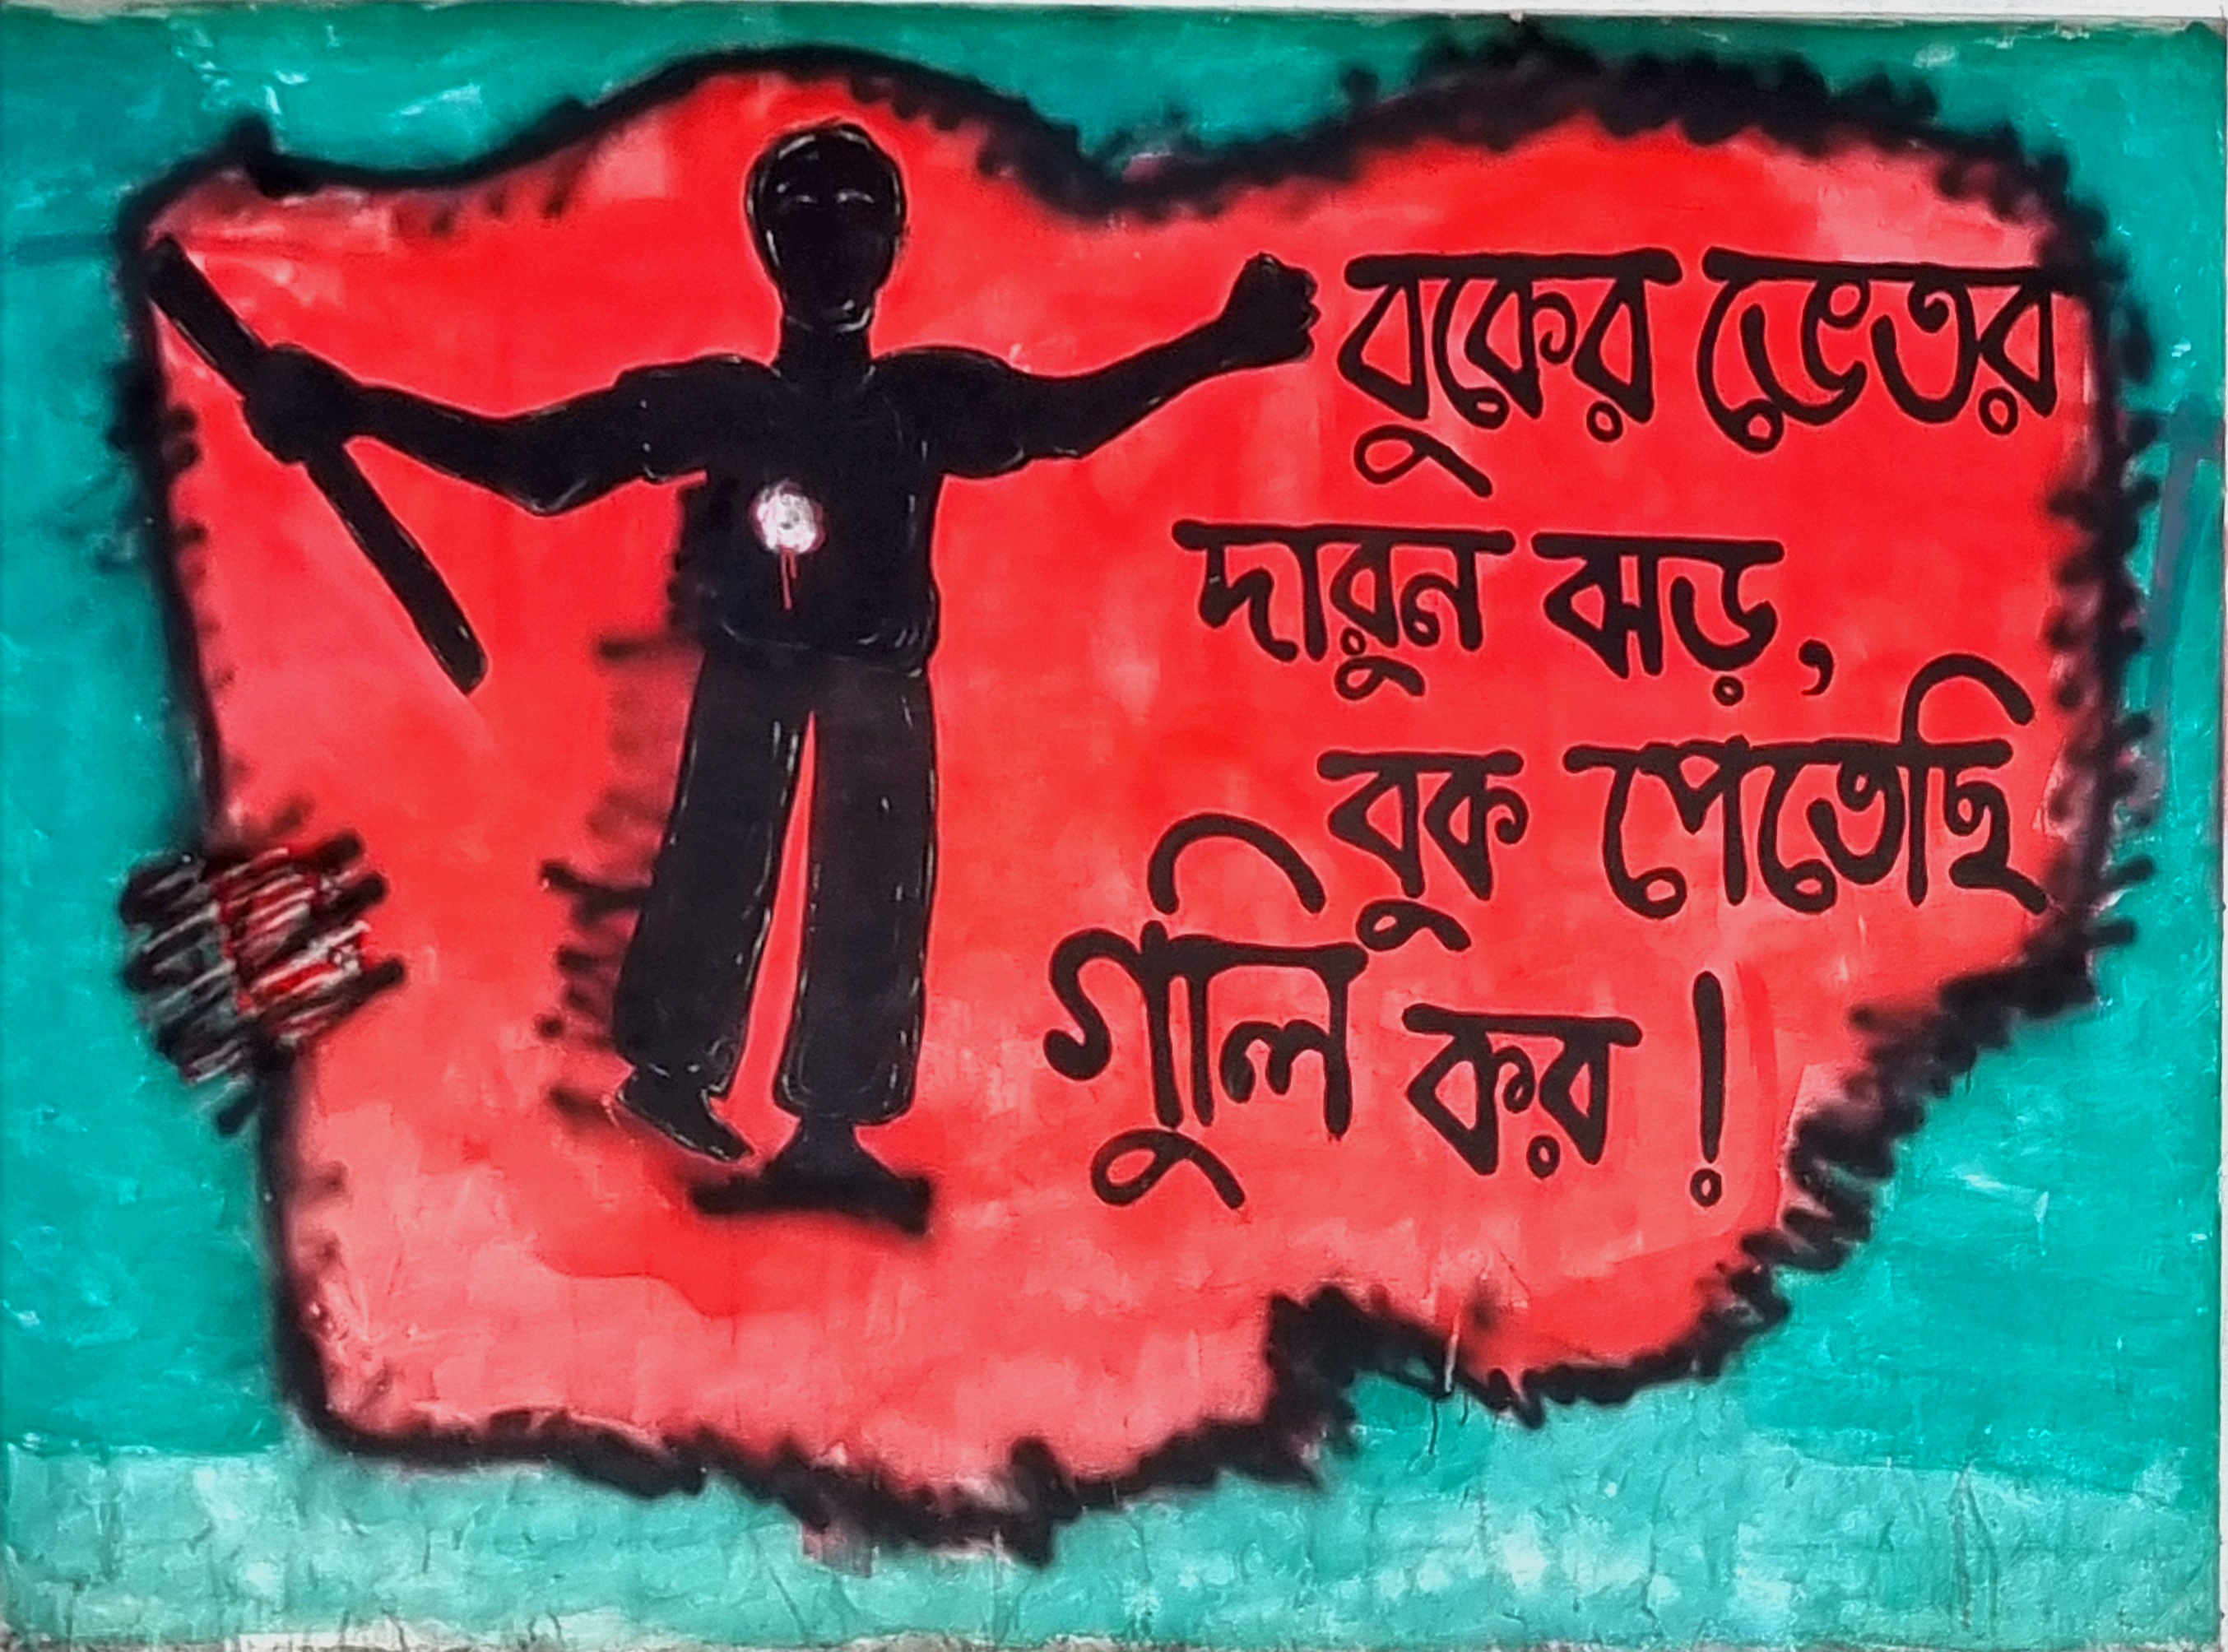 বুকের ভেতর
দারুন ঝড়,
বুক পেতেছি
গুলি কর !